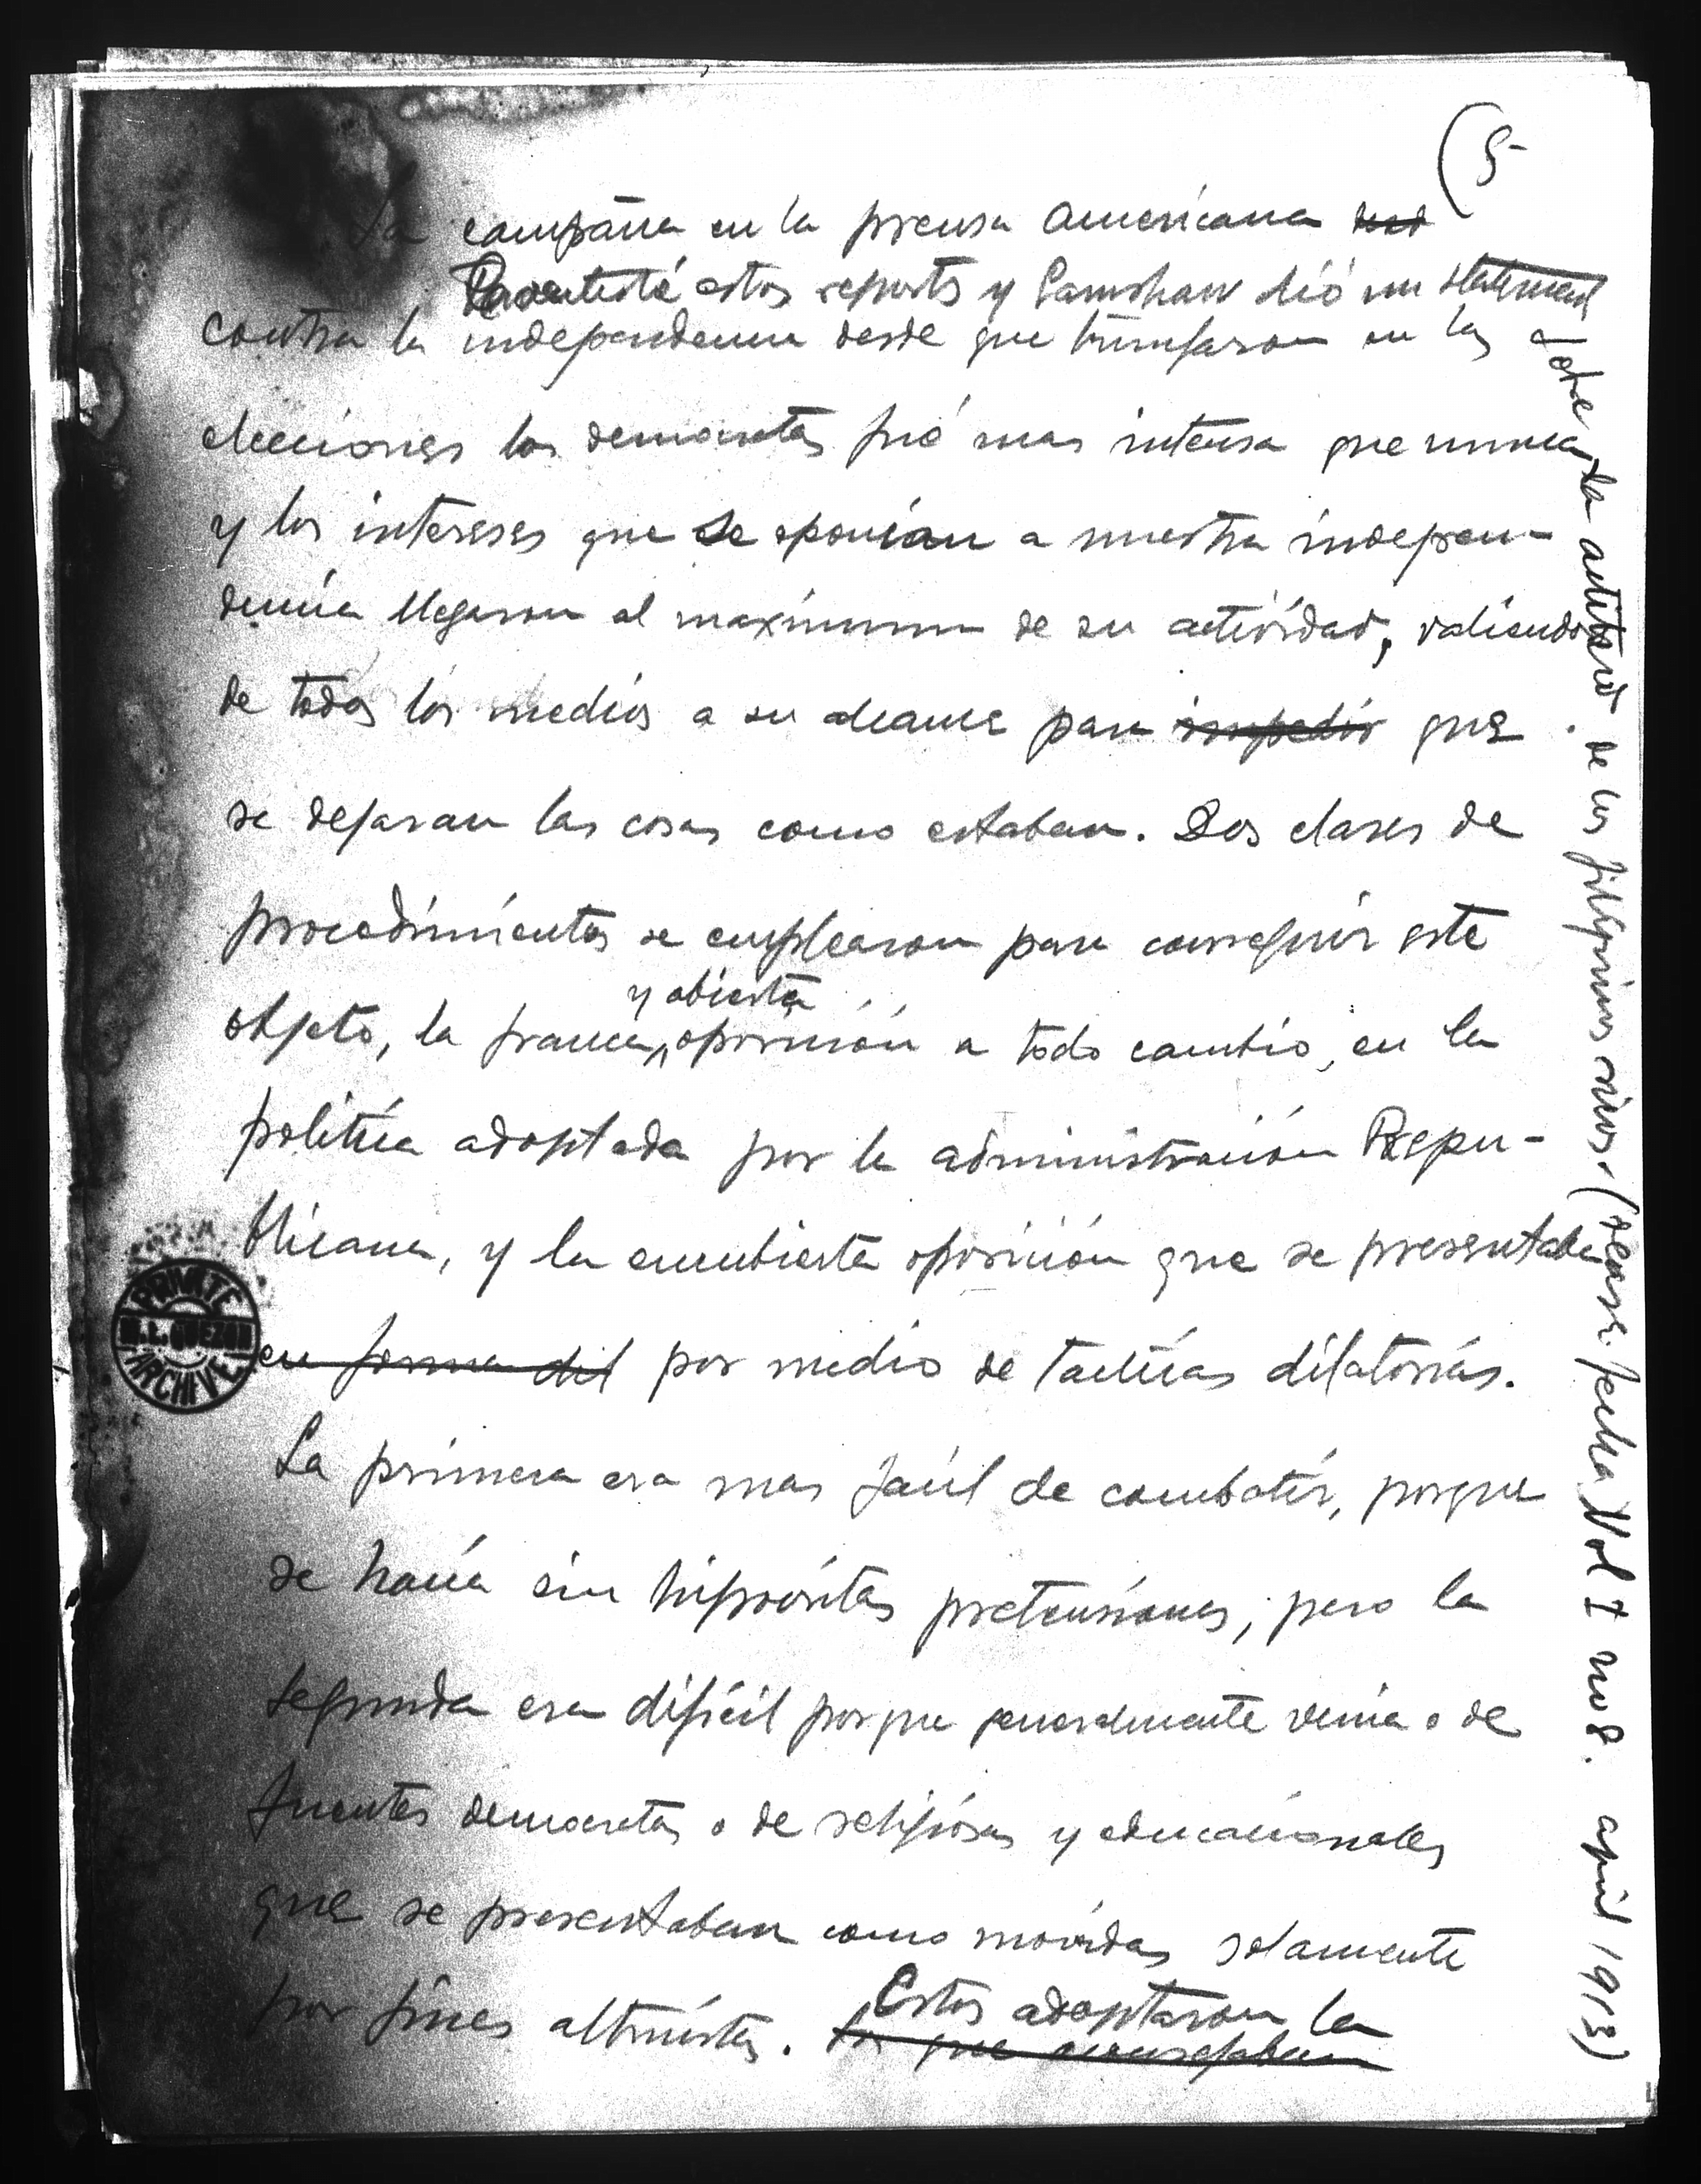 (5-
La campaña en la prensa americana
estos reports y dió un statement
contra la independencia desde que triunfaron en las
elecciones los demócratas fué mas intensa que nunca,
y los intereses que se oponian a nuestra indepen-
dencia llegaron al maximum de su actividad, valiendose
de todos los medios a su alcance para impedir que
se dejaran las cosas como estaban. Dos clases de
procedimientos se emplearon para conseguir este
y abierta
objeto, la franca oposición a todo cambio, en la
politica adoptada por la administración Repu-
blicana, y la encubierta oposición que se presentaba
en forma dil por medio de tacticas dilatorias.
La primera era mas facil de combatir, porque
se hacia sin hipocritas pretensiones, pero la
segunda era dificil porque generalmente venia o de
fuentes democratas o de religiosas y educacionales
que se presentaban como movidas solamente
por fines altruistas. Estos adoptaron la
lo que aconsejaban
sobre la actitud de los filipinos ricos. (vease fecha Vol I no 8. april 1913)
PRIVATE
M.L. QUEZON
ARCHIVE